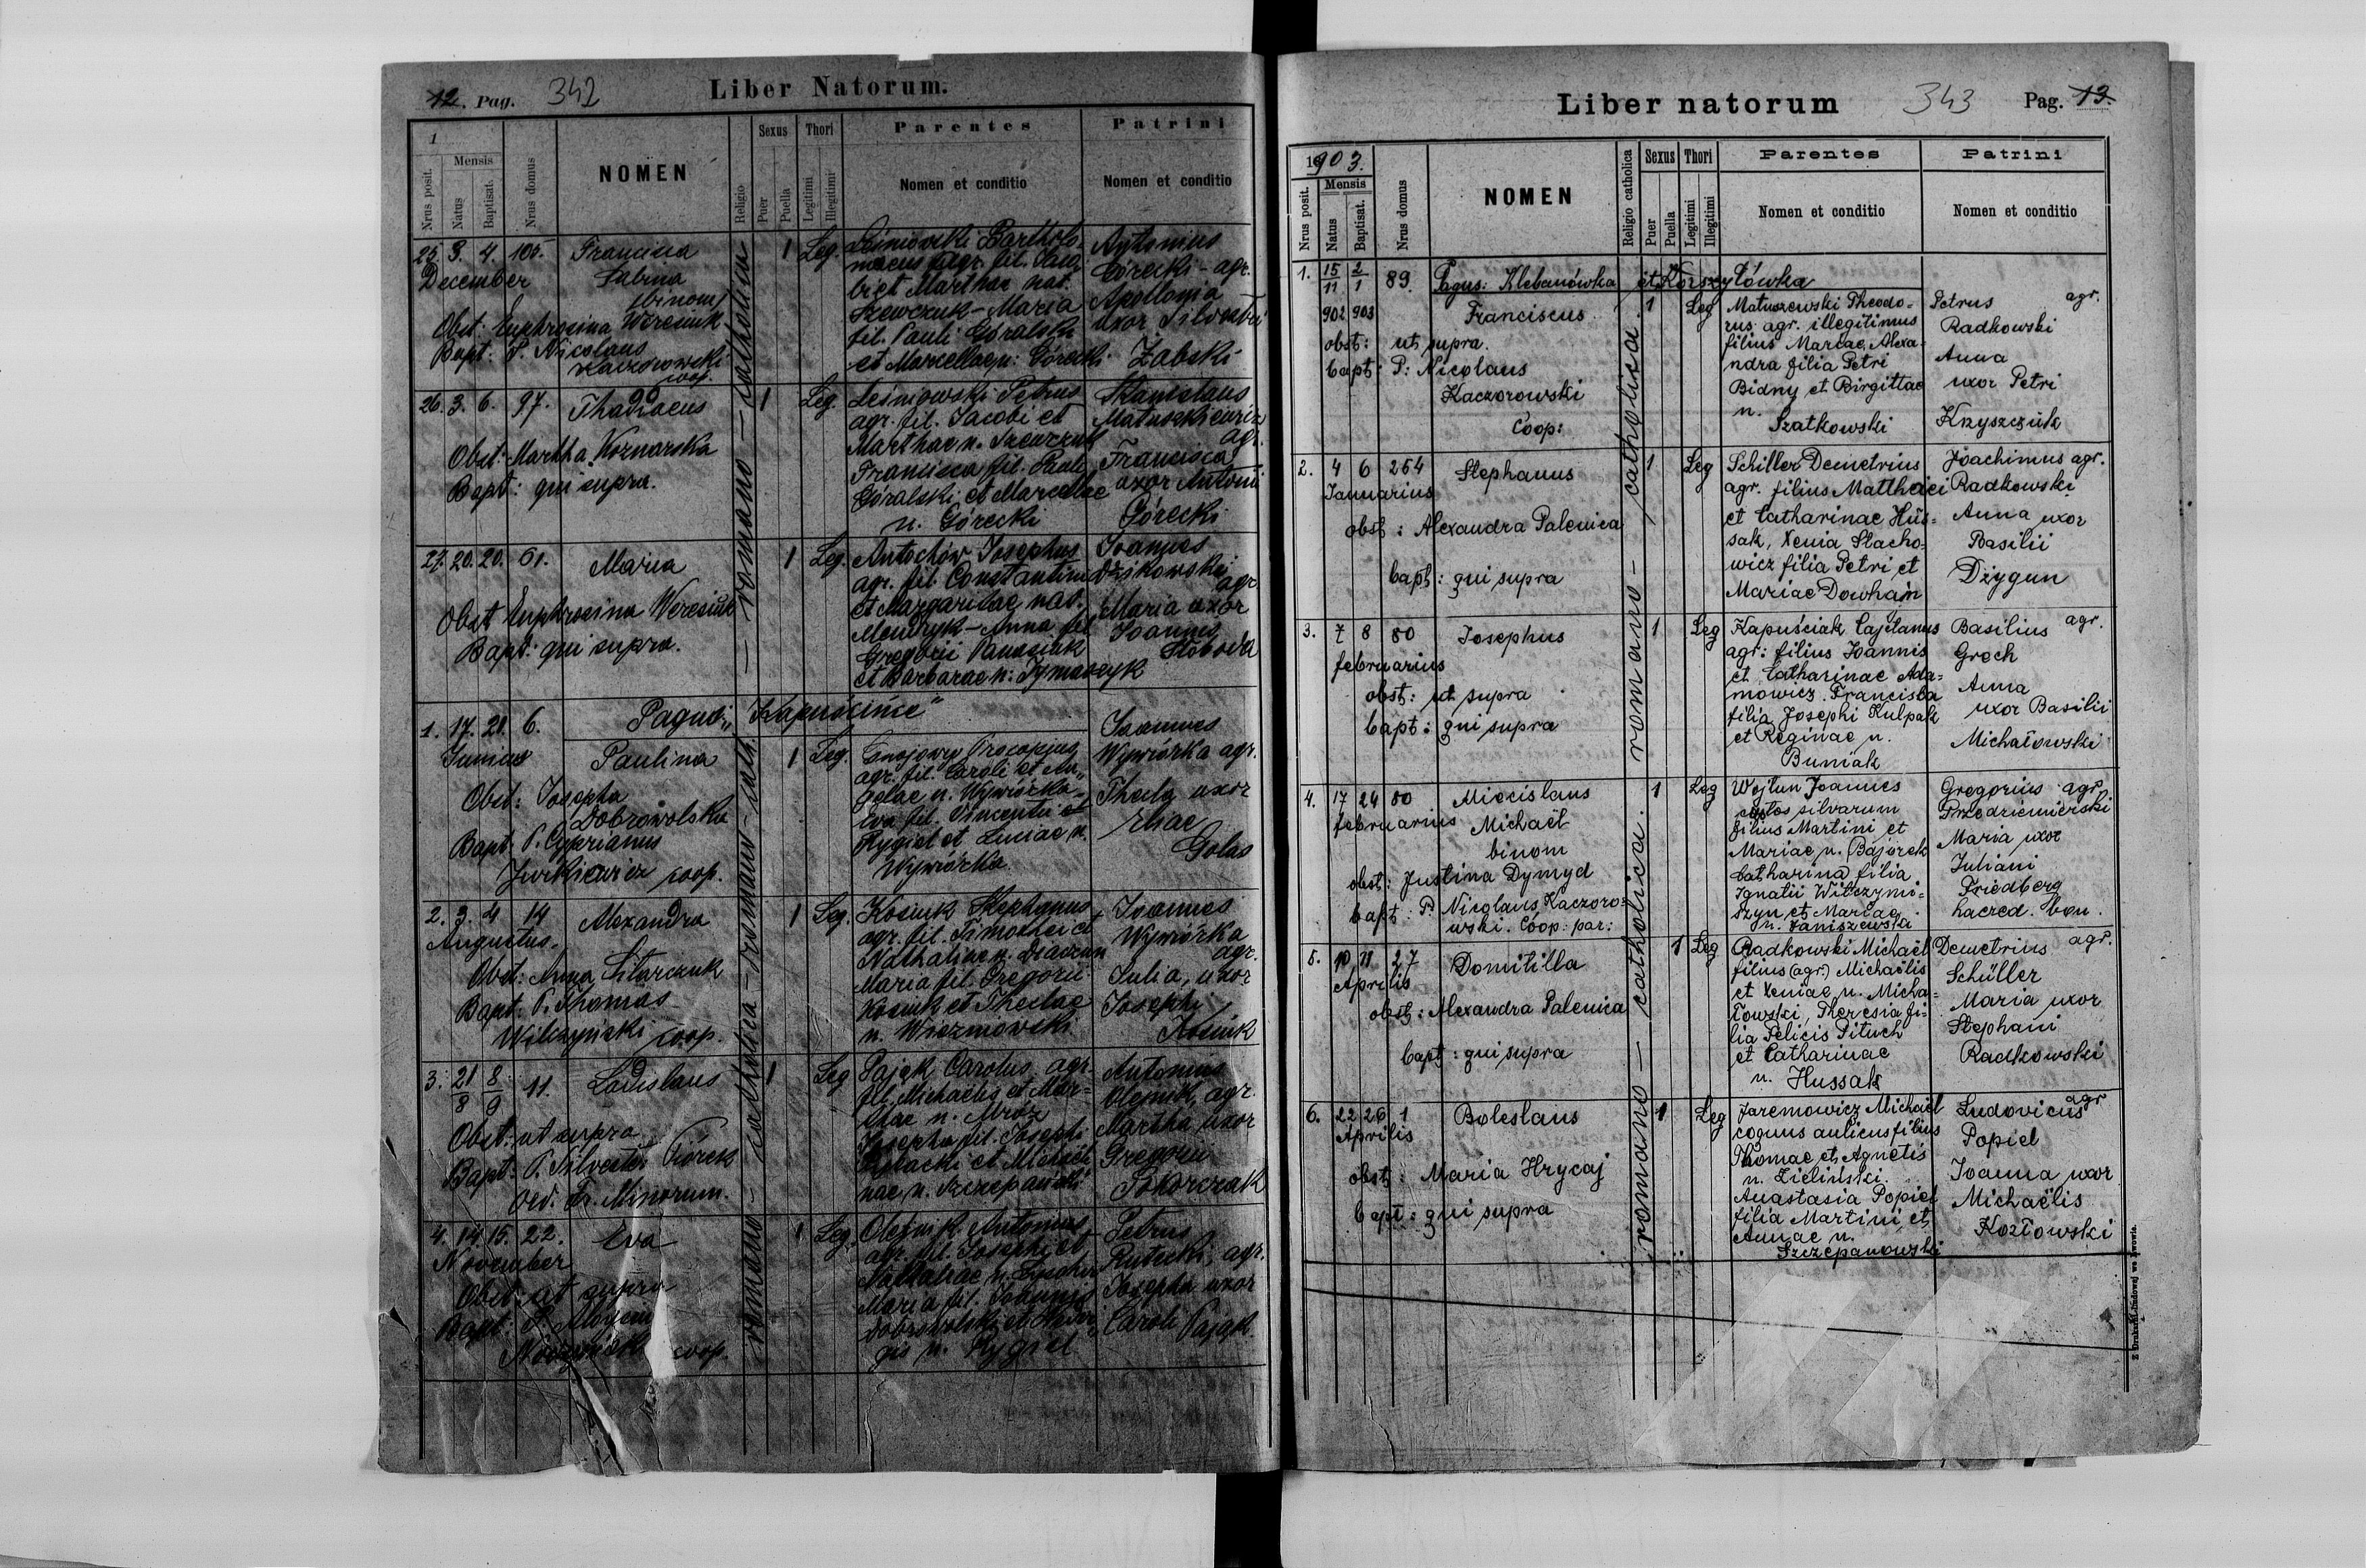 12. Pag. 342
Liber Natorum.
1
Nrus posit.
Mensis
Natus
Baptisat.
Nrus domus
NOMEN
Religio
Sexus
Puer
Puella
Thori
Legitimi
Illegitimi
Parentes
Nomen et conditio
Patrini
Nomen et conditio
romano - catholica
25. 3. 4. 105. Francisca
December Sabina
(binom)
Obst: Euphrosina Weresiuk
Bapt: P. Nicolaus
Kaczorowski
coop.
1 Leg.
Leśniowski Bartholo-
maeus agr. fil. Jaco-
bi et Marthae nat.
Szewczuk - Maria
fil. Pauli Góralski
et Marcellae n: Górecki
Antonius
Górecki - agr.
Apollonia
uxor Silvestri
Żabski
26. 3. 6. 97. Thadaeus
Obst: Martha Woznarska
Bapt: qui supra.
1 Leg.
Leśniowski Petrus
agr. fil. Jacobi et
Marthae n. Szewczuk
Francisca fil. Pauli
Góralski et Marcellae
n. Górecki
Stanislaus
Matuszkiewicz
agr.
Francisca
uxor Antonii
Górecki
27. 20. 20. 61. Maria
Obst Euphrosina Weresiuk
Bapt: qui supra.
1 Leg.
Antochów Josephus
agr. fil. Constantini
et Margaritae nat.
Mendryk - Anna fil
Gregorii Panasiuk
et Barbarae n: Tymczyk
Joannes
Dzikowski
agr
Maria uxor
Joannes
Słoboda
Pagus: "Kapuścińce"
1. 17. 21. 6.
Junius Paulina
Obst: Josepha
Dobrowolska
Bapt: P. Cyprianus
Jurkiewicz coop.
1 Leg.
Gnojowy Procopius
agr. fil. Caroli et An-
gelae n. Wywiórka-
Eva fil. Vincentii et
Rygiel et Luciae n.
Wywiórka.
Joannes
Wywiórka agr.
Thecla uxor
Eliae
Golas
2. 3. 4 14 Alexandra
Augustus.
Obst: Anna Sitarczuk
Bapt: P. Thomas
Wilczyński coop.
1 Leg.
Kosiuk Stephanus
agr. fil. Timothei et
Nathaliae n. Diaczun
Maria fil. Gregorii
Kosiuk et Theclae
n. Wiezmowski
Joannes
Wywiórka
agr.
Julia, uxor
Josephi
Kosiuk
3. 21/8 8/9 11. Ladislaus
Obst: ut supra
Bapt: P. Silvester Piórek
Ord. Fr. Minorum.
1 Leg
Pająk Carolus, agr.
fil. Michaelis et Mar-
thae n. Mróz
Josepha fil. Josephi
n. Szczepański
Antonius
Olejnik, agr.
Martha uxor
Gregorii
4. 14. 15. 22. Eva
November
Obst: ut supra
Bapt: P.
coop.
1 Leg.
Olejnik Antonius
agr. fil. Josephi et
Nathaliae n.
Maria fil. Joannis
Dobrowolski et Hedvi-
gis n. Rygiel
Petrus
Rutecki, agr.
Josepha uxor
Caroli Pająk.
romano - catholica - romano - cath.
Liber natorum
343
Pag. 13.
1903.
Nrus posit.
Mensis
Natus
Baptisat.
Nrus domus
NOMEN
Religio catholica
Sexus
Puer
Puella
Thori
Legitimi
Illegitimi
Parentes
Nomen et conditio
Patrini
Nomen et conditio
romano - catholica. romano - catholica.
1. 15/11 2/1 89. Pagus: Klebanówka et Korszyłówka
902 903 Franciscus
obst: ut supra.
bapt: P: Nicolaus
Kaczorowski
Coop:
1 Leg
Matuszewski Theodo-
rus agr. illegitimus
filius Mariae, Alexa-
ndra filia Petri
Bidny et Birgittae
n.
Szatkowski
Petrus agr.
Radkowski
Anna
uxor Petri
Krzyszczuk
2. 4 6 254 Stephanus
Ianuarius
obst: Alexandra Palenica
bapt: qui supra
1 Leg
Schiller Demetrius
agr. filius Matthaei
et Catharinae Hus-
sak, Xenia Stacho-
wicz filia Petri et
Mariae Dowhań
Joachimus agr.
Radkowski
Anna uxor
Basilii
Dżygun
3. 7 8 80 Iosephus
februarius
obst: ut supra
bapt: qui supra
1 Leg
Kapuściak Cajetanus
agr: filius Joannis
et Catharinae Ada-
mowicz. Francisca
filia Josephi Kulpak
et Reginae n.
Buniak
Basilius agr.
Groch
Anna
uxor Basilii
Michałowski
4. 17 24 80 Miecislaus
februarius Michaël
binom
obst: Justina Dymyd
bapt: P. Nicolaus Kaczoro-
wski. Coop: par:
1 Leg
Wojtun Joannes
custos silvarum
filius Martini et
Mariae n. Bajorek
Catharina filia
Ignatii Witczymi-
szyn et Mariae
n. Janiszewski
Gregorius agr.
Przedrzemierski
Maria uxor
Juliani
Friedberg
haered. bon.
5. 10 11 27 Domitilla
Aprilis
obst: Alexandra Palenica
bapt: qui supra
1 Leg
Radkowski Michaël
filius (agr.) Michaëlis
et Xeniae n. Micha-
łowski, Theresia fi-
lia Felicis Pituch
et Catharinae
n. Hussak
Demetrius agr.
Schüller
Maria uxor
Stephani
Radkowski
6. 22 26 1 Boleslaus
Aprilis
obst: Maria Hrycaj
bapt: qui supra
1 Leg
Jaremowicz Michaël
coquus aulicus filius
Thomae et Agnetis
n. Zieliński.
Anastasia Popiel
filia Martini et
Annae n.
Szczepanowski
Ludovicus agr
Popiel
Joanna uxor
Michaëlis
Kozłowski
Z Drukarni Ludowej we Lwowie.